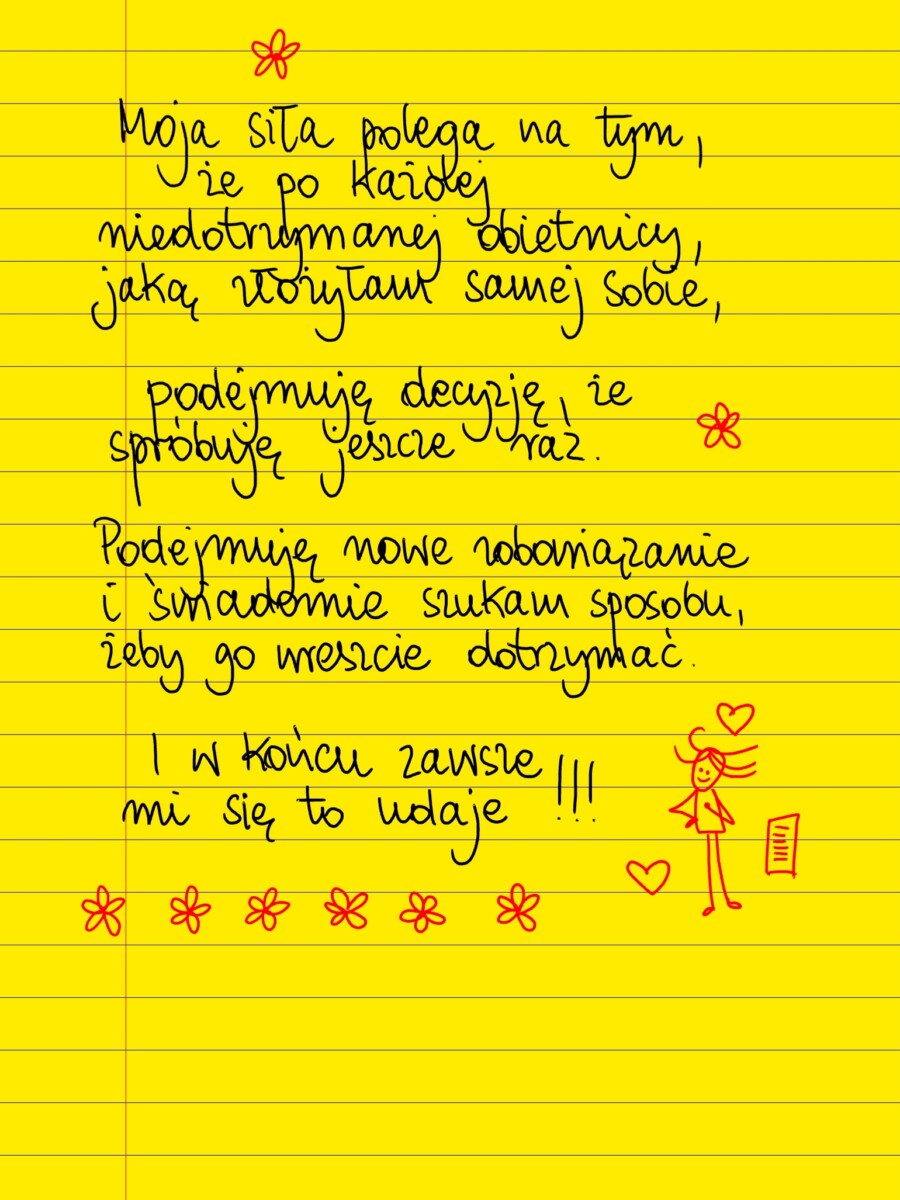 Moja siła polega na tym,
że po każdej
niedotrzymanej obietnicy,
jaką złożyłam samej sobie,
podejmuję decyzję, że
spróbuję jeszcze raz.
Podejmuję nowe zobowiązanie
i świadomie szukam sposobu,
żeby go wreszcie dotrzymać.
I w końcu zawsze
mi się to udaje !!!